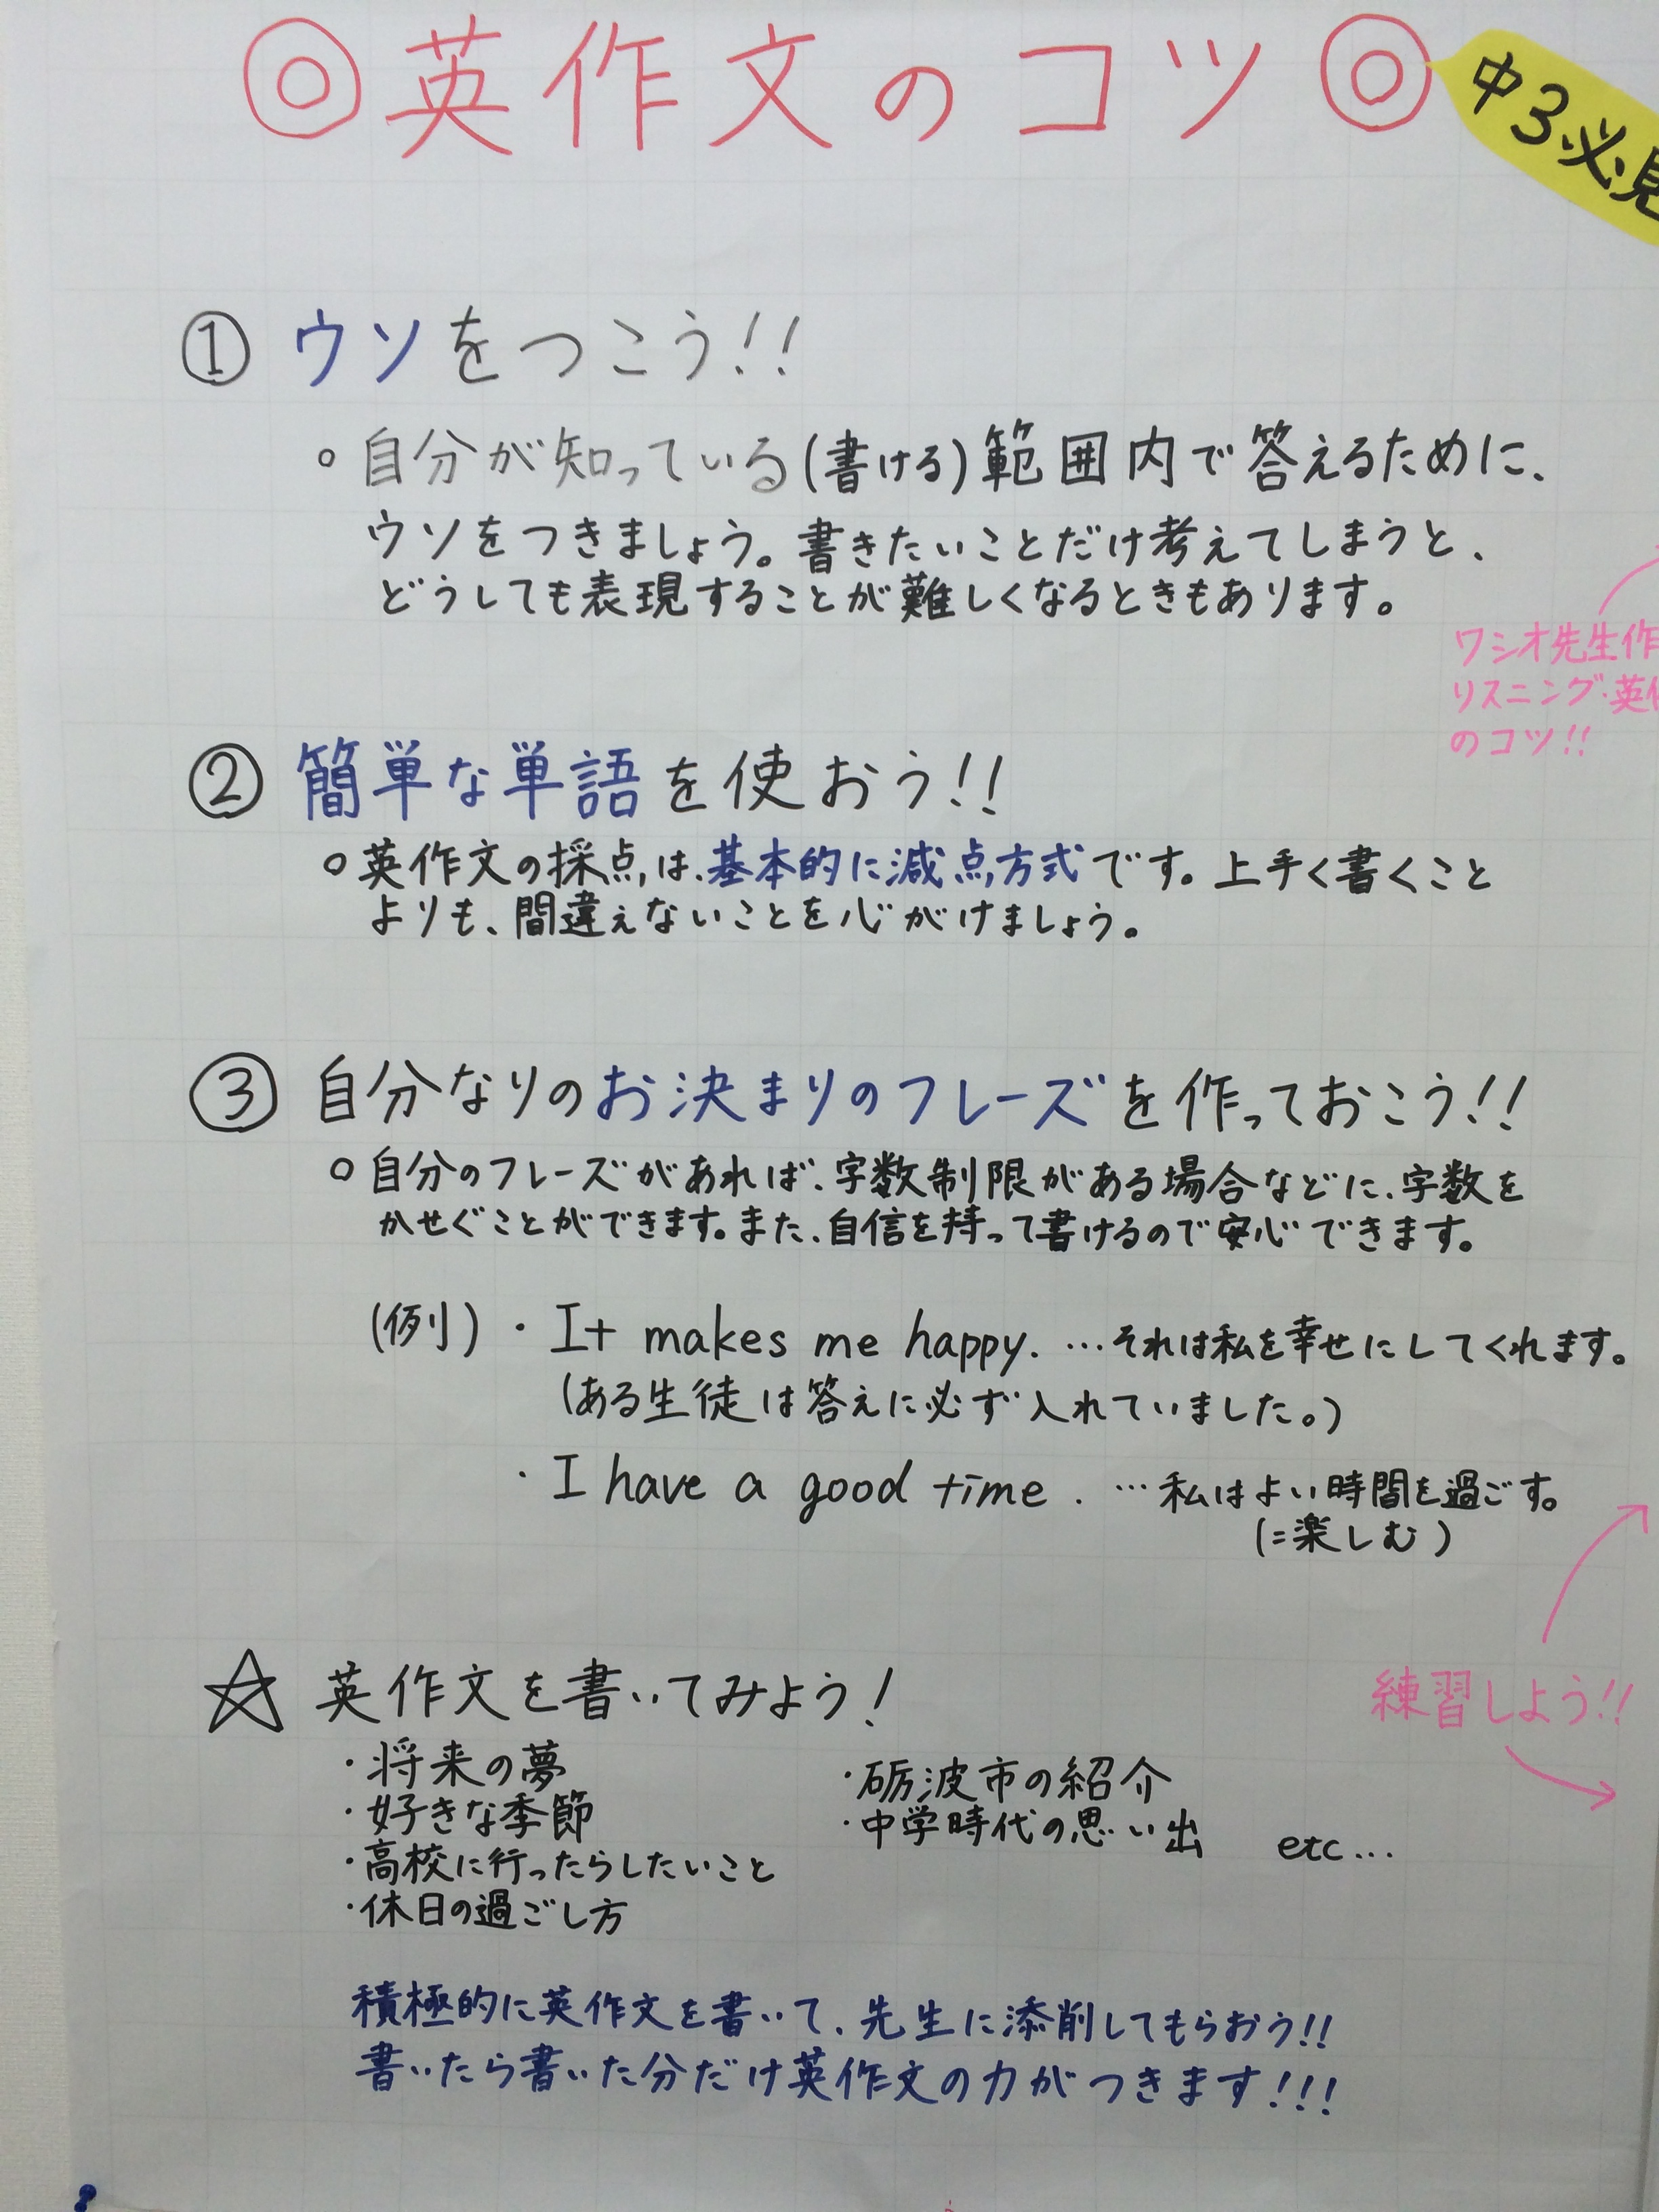 ◎英作文のコツ◎
中3必見
① ウソをつこう!!
○ 自分が知っている(書ける)範囲内で答えるために、
ウソをつきましょう。書きたいことだけ考えてしまうと、
どうしても表現することが難しくなるときもあります。
ワシオ先生作
リスニング・英作
のコツ!!
② 簡単な単語を使おう!!
○ 英作文の採点は、基本的に減点方式です。上手く書くこと
よりも、間違えないことを心がけましょう。
③ 自分なりのお決まりのフレーズを作っておこう!!
○ 自分のフレーズがあれば、字数制限がある場合などに、字数を
かせぐことができます。また、自信を持って書けるので安心できます。
(例)・It makes me happy. …それは私を幸せにしてくれます。
(ある生徒は答えに必ず入れていました。)
・I have a good time. …私はよい時間を過ごす。
(=楽しむ)
☆ 英作文を書いてみよう!
練習しよう!!
・将来の夢
・好きな季節
・高校に行ったらしたいこと
・休日の過ごし方
・砺波市の紹介
・中学時代の思い出 etc…
積極的に英作文を書いて、先生に添削してもらおう!!
書いたら書いた分だけ英作文の力がつきます!!!